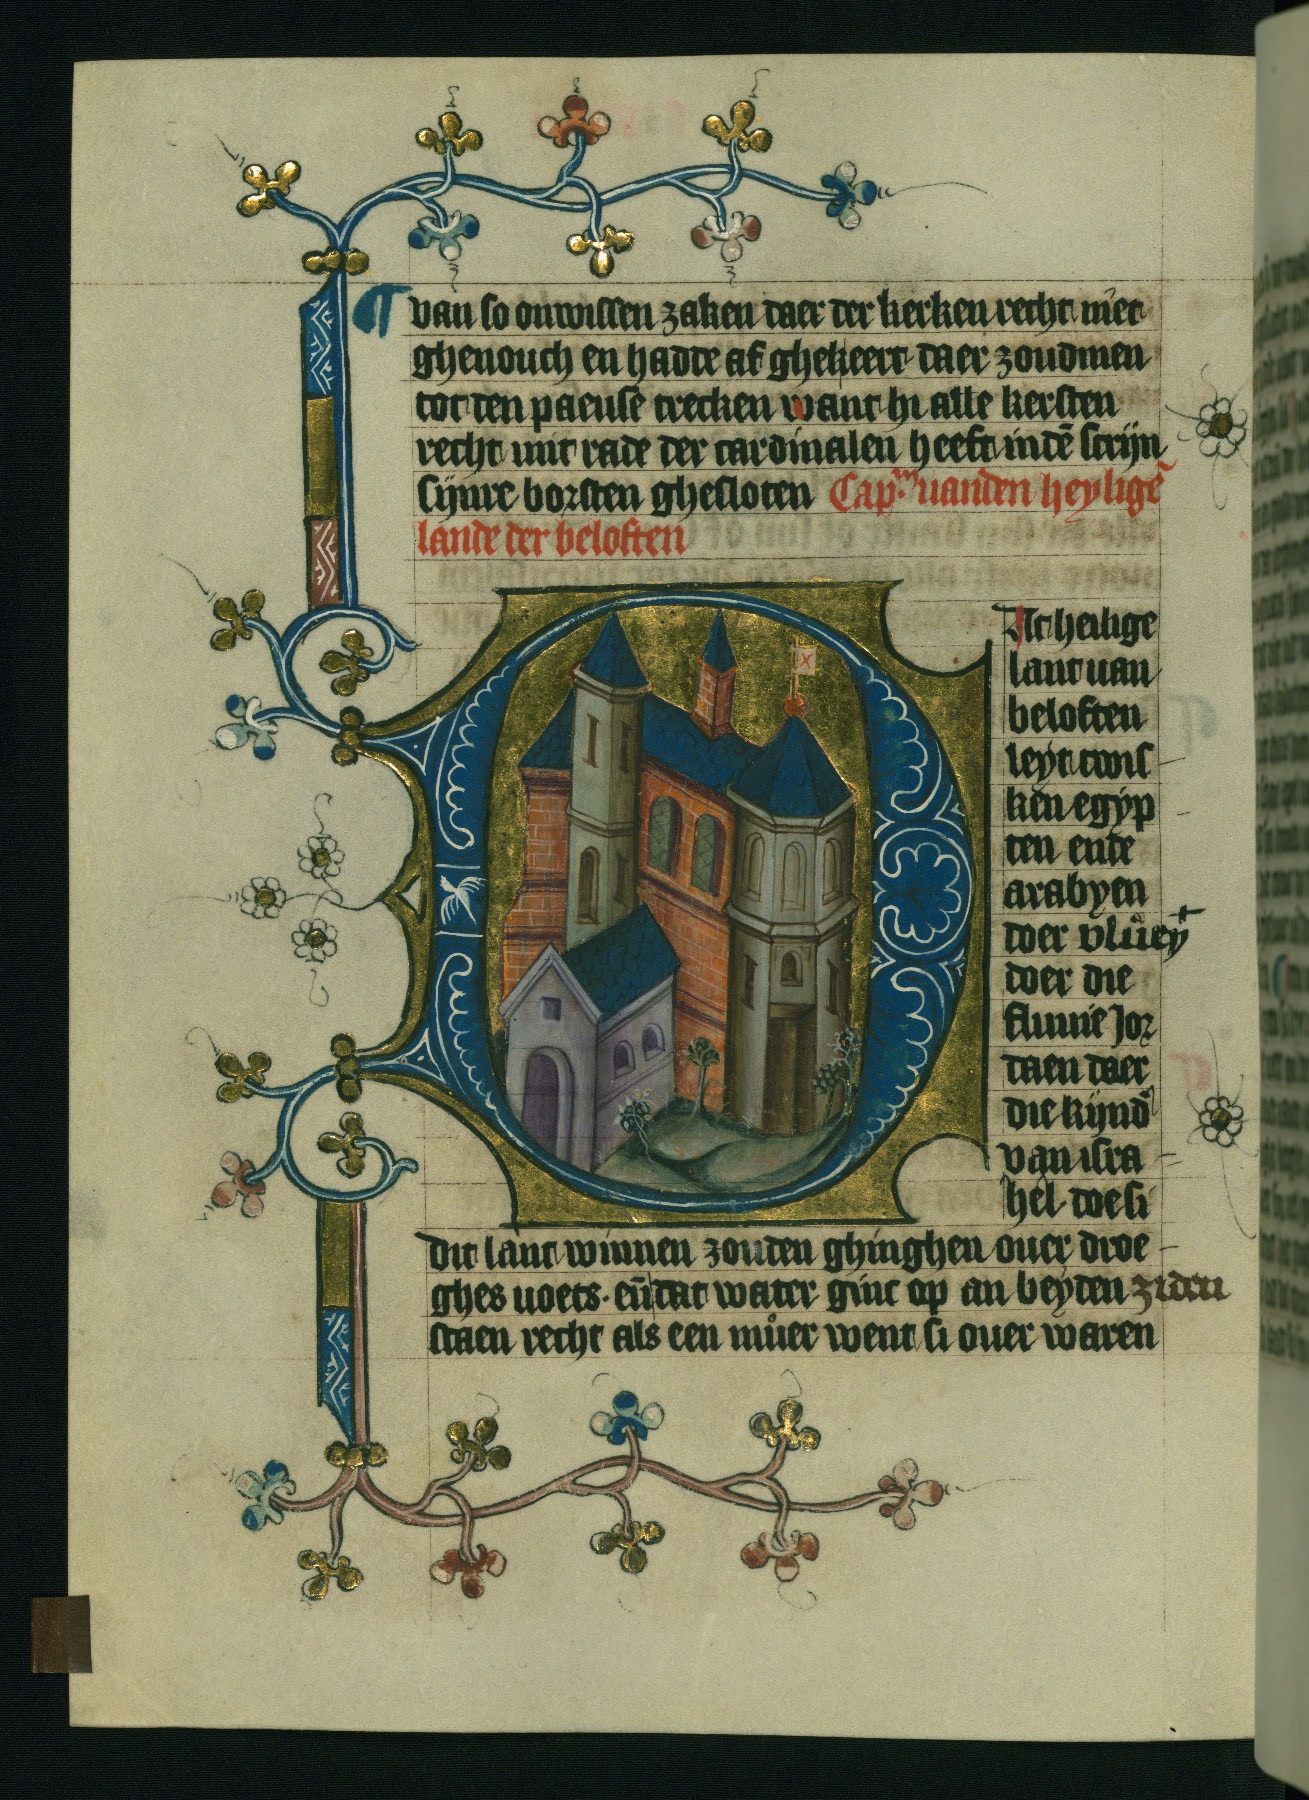 ¶ van so onwissen zaken daer der kerken recht niet
ghenouch en hadde af ghekeert daer zoudmen
tot ten paeuse trecken want hi alle kersten
recht mit rade der cardinalen heeft in dē scrijn
sijnre borsten ghesloten Cap.m vanden heyligē
lande der beloften
D At heilige
lant van
beloften
leyt twis
ken egyp
ten ende
arabyen
doer
doer die
flumie Jor
daen daer
die kijnd
van isra
hel doe si
dit lant winnen zouden ghinghen ouer droe
ghes voets. en̄ dat water ginc op an beyden ziden
staen recht als een můer went si ouer waren